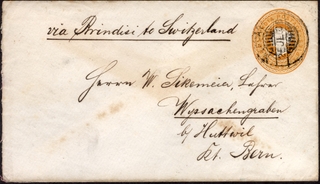 via Brindisi to Switzerland
Herrn W. Sikemeier, Lehrer
Wyssachengraben
b/ Huttwil
Kt. Bern.